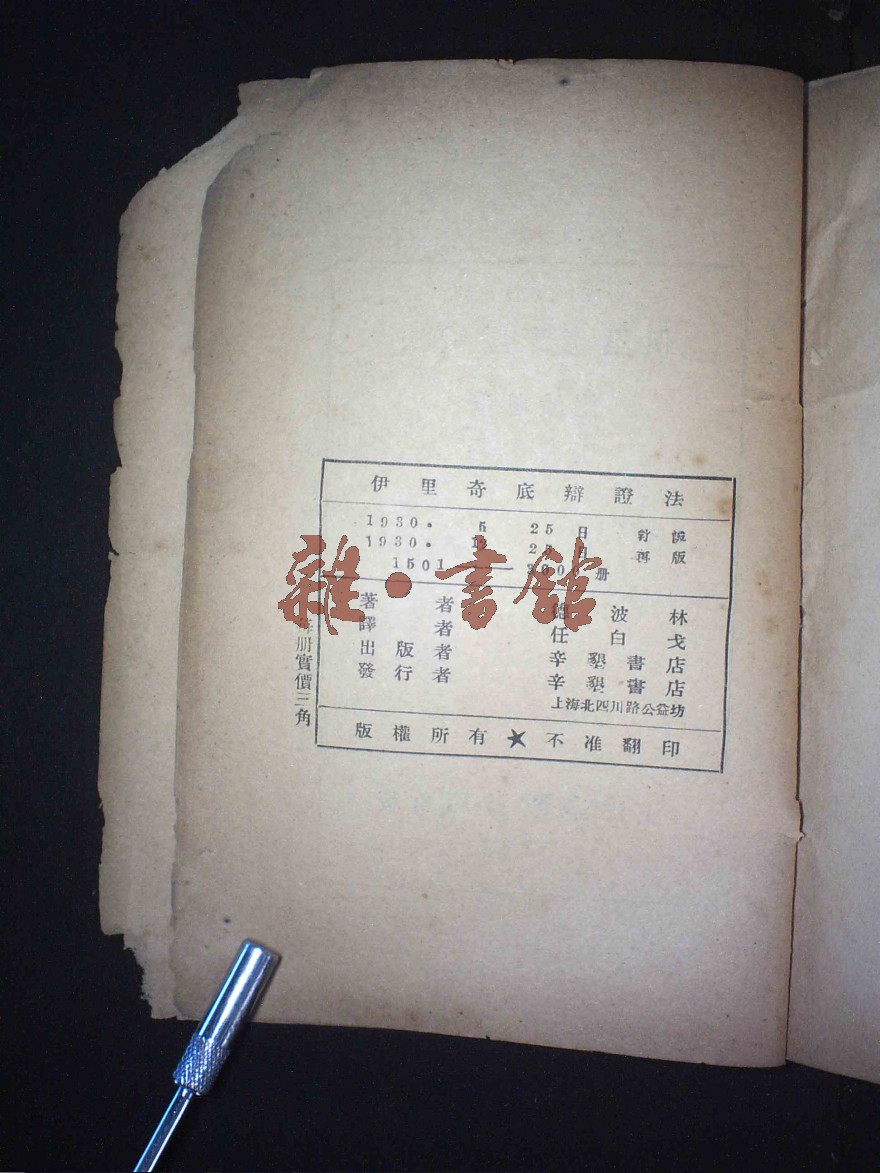 伊里奇底辯證法
1930. 5 25日 付
1930. 12 25日 再版
1501——3000册
著者 德波林
譯者 任白戈
出版者 辛墾書店
發行者 辛墾書店
上海北四川路公益坊
版權所有★不准翻印
每册實價三角
雜·書館